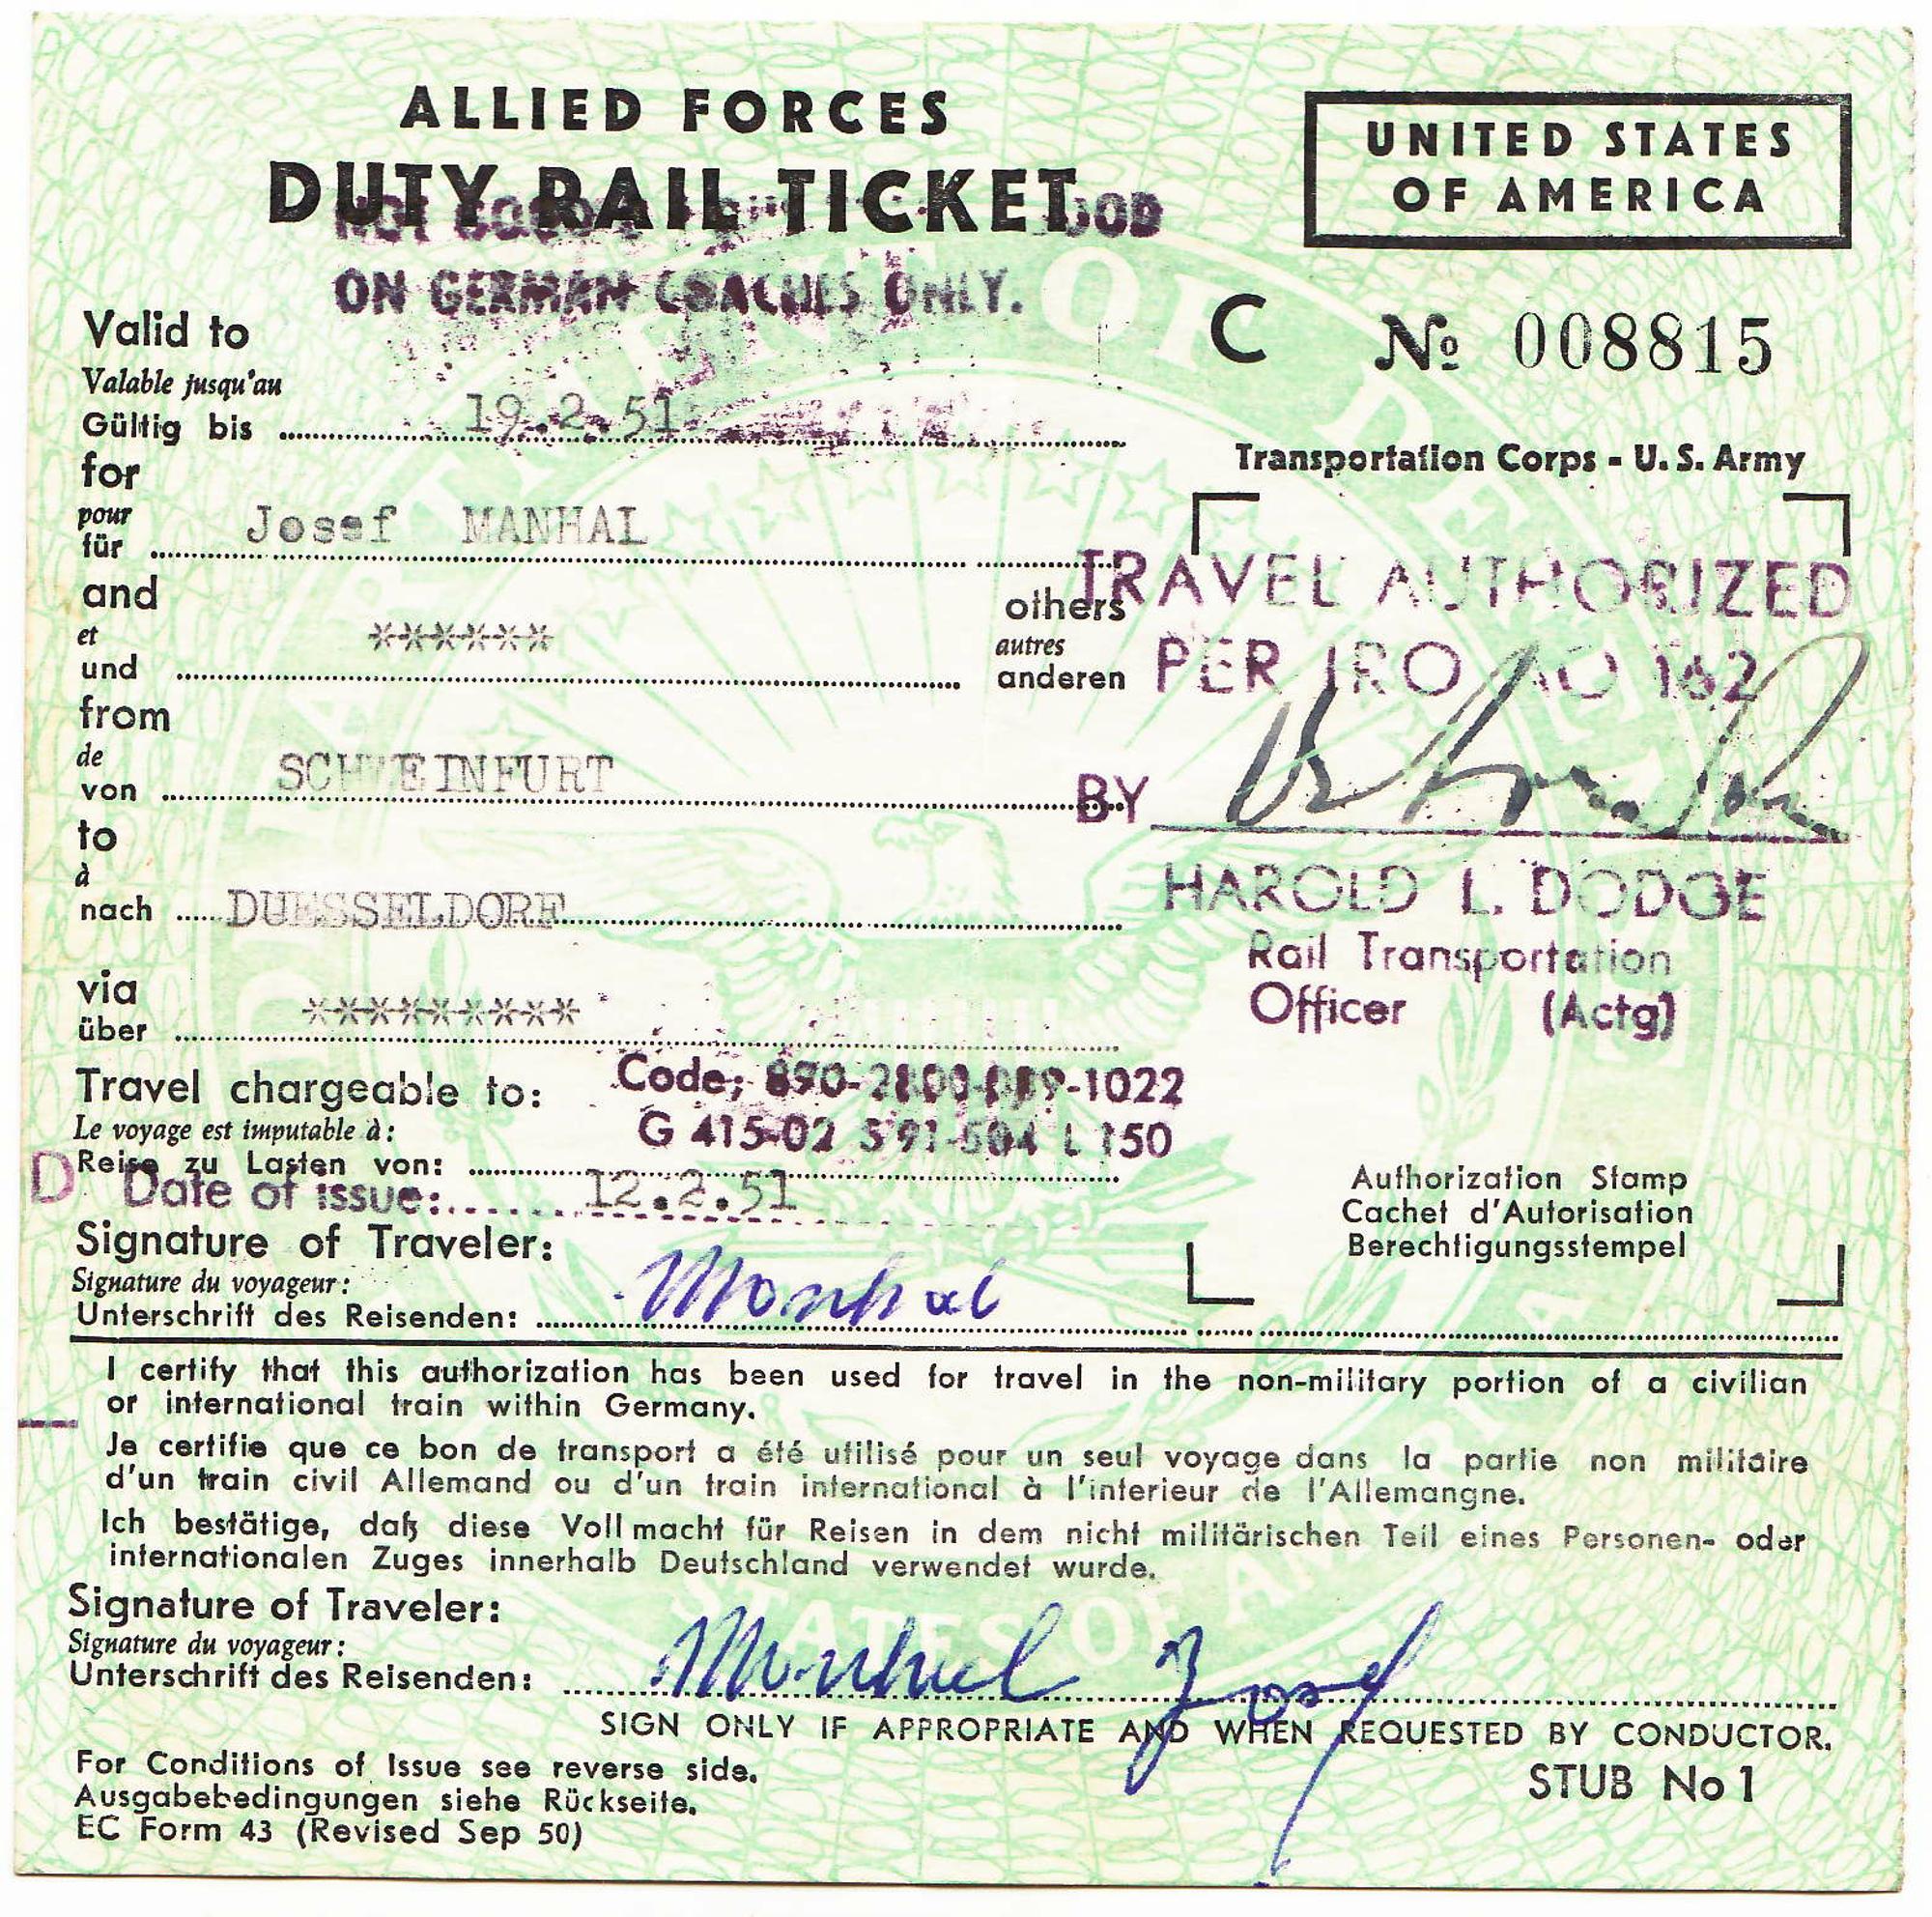 ALLIED FORCES
DUTY RAIL TICKET
NOT GOOD
ON GERMAN COACHES ONLY.
UNITED STATES
OF AMERICA
C № 008815
Valid to
Valable jusqu'au
Gültig bis 19.2.51
Transportation Corps - U. S. Army
for
pour
für Josef MANHAL
and
et
und ******
others
autres
anderen
from
de
von SCHWEINFURT
to
à
nach DUESSELDORF
via
über *********
TRAVEL AUTHORIZED
PER IRO AO 162
BY
HAROLD L. DODGE
Rail Transportation
Officer (Actg)
Travel chargeable to: Code; 890-
Le voyage est imputable à: G 415-02
Reise zu Lasten von:
D Date of issue: 12.2.51
Authorization Stamp
Cachet d'Autorisation
Berechtigungsstempel
Signature of Traveler:
Signature du voyageur:
Unterschrift des Reisenden: Manhal
I certify that this authorization has been used for travel in the non-military portion of a civilian
or international train within Germany.
Je certifie que ce bon de transport a été utilisé pour un seul voyage dans la partie non militaire
d'un train civil Allemand ou d'un train international à l'interieur de l'Allemangne.
Ich bestätige, daß diese Vollmacht für Reisen in dem nicht militärischen Teil eines Personen- oder
internationalen Zuges innerhalb Deutschland verwendet wurde.
Signature of Traveler:
Signature du voyageur:
Unterschrift des Reisenden: Manhal Josef
SIGN ONLY IF APPROPRIATE AND WHEN REQUESTED BY CONDUCTOR.
For Conditions of Issue see reverse side.
Ausgabebedingungen siehe Rückseite.
EC Form 43 (Revised Sep 50)
STUB No 1